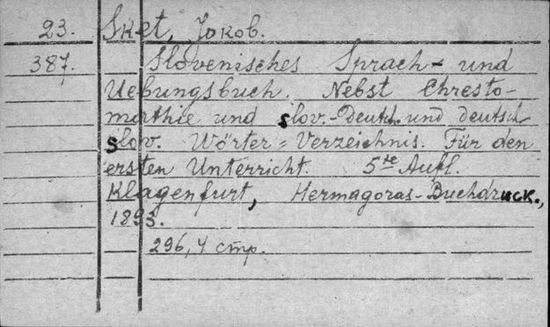 23. Sket, Jakob.
387. Slovenisches Sprach- und
Uebungsbuch. Nebst Chresto-
mathie und slov.-Deutsch. und deutsch
slov. Wörter-Verzeichnis. Für den
ersten Unterricht. 5te Aufl.
Klagenfurt, Hermagoras-Buchdruck.,
1893.
296, 4 стр.